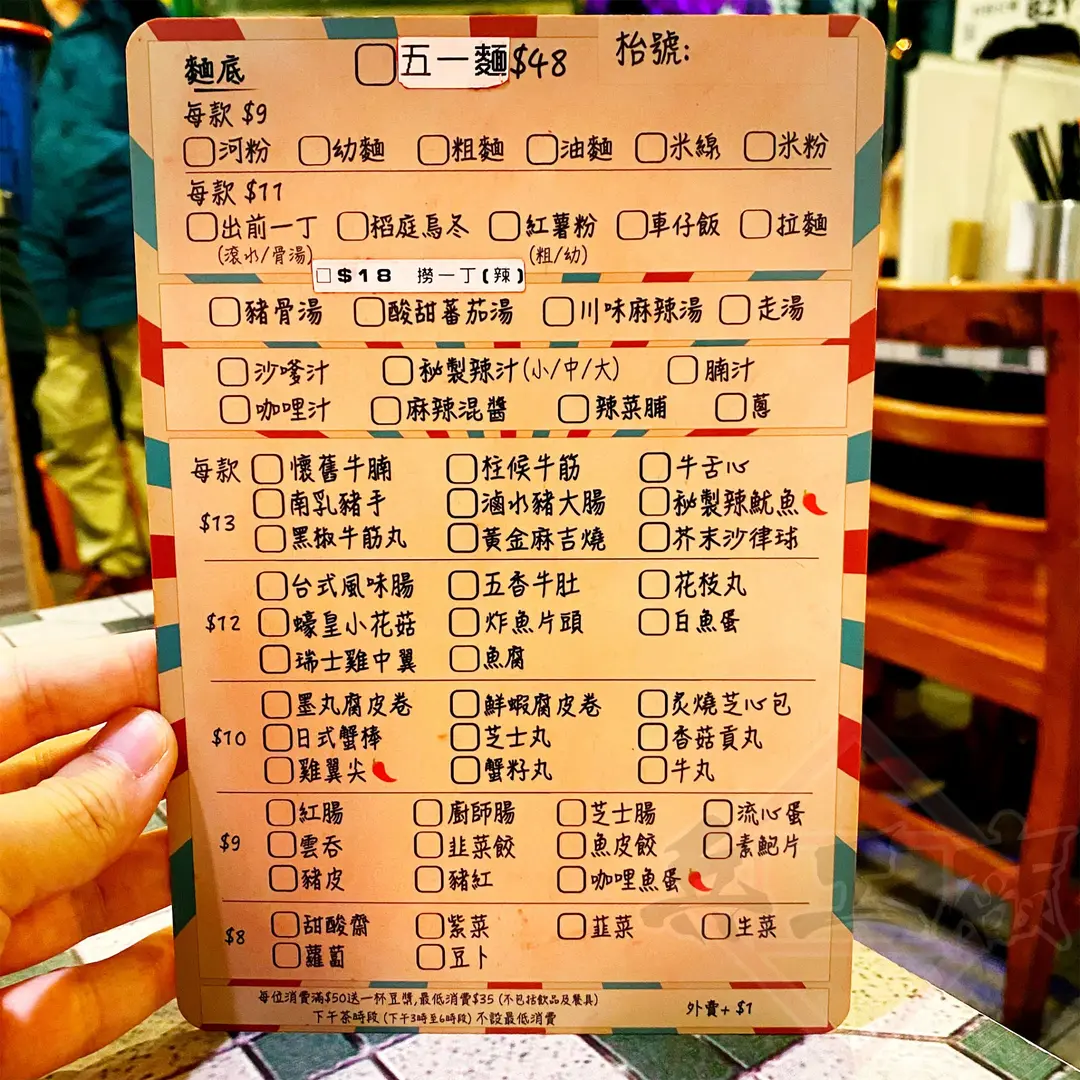 麵底 □五一麵$48 枱號:
每款 $9
□河粉 □幼麵 □粗麵 □油麵 □米線 □米粉
每款 $11
□出前一丁 □稻庭烏冬 □紅薯粉 □車仔飯 □拉麵
(滾水/骨湯) (粗/幼)
□$18 撈一丁(辣)
□豬骨湯 □酸甜蕃茄湯 □川味麻辣湯 □走湯
□沙嗲汁 □秘製辣汁(小/中/大) □腩汁
□咖哩汁 □麻辣混醬 □辣菜脯 □蔥
每款 □懷舊牛腩 □柱候牛筋 □牛舌心
$13 □南乳豬手 □滷水豬大腸 □秘製辣魷魚
□黑椒牛筋丸 □黃金麻吉燒 □芥末沙律球
□台式風味腸 □五香牛肚 □花枝丸
$12 □蠔皇小花菇 □炸魚片頭 □白魚蛋
□瑞士雞中翼 □魚腐
□墨丸腐皮卷 □鮮蝦腐皮卷 □炙燒芝心包
$10 □日式蟹棒 □芝士丸 □香菇貢丸
□雞翼尖 □蟹籽丸 □牛丸
□紅腸 □廚師腸 □芝士腸 □流心蛋
$9 □雲吞 □韭菜餃 □魚皮餃 □素鮑片
□豬皮 □豬紅 □咖哩魚蛋
$8 □甜酸齋 □紫菜 □韮菜 □生菜
□蘿蔔 □豆卜
每位消費滿$50送一杯豆漿,最低消費$35 (不包括飲品及餐具)
下午茶時段 (下午3時至6時段) 不設最低消費
外賣+ $1